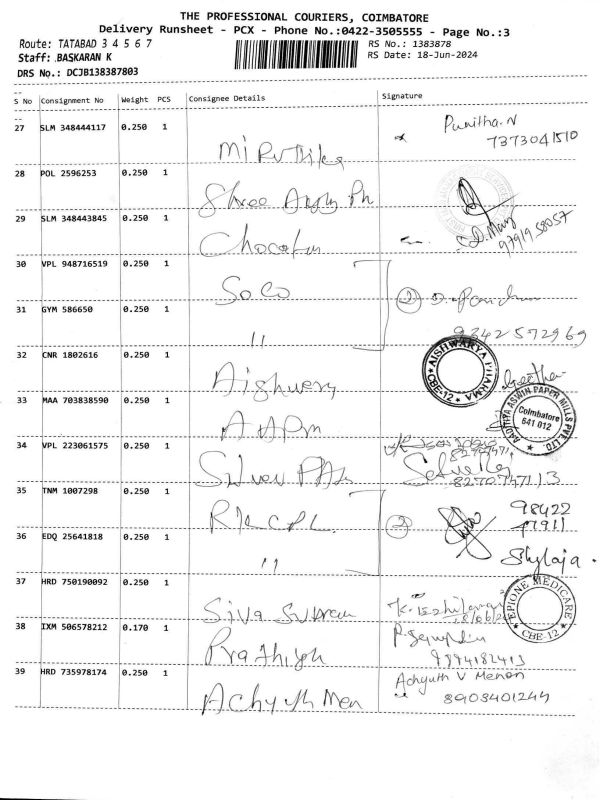 THE PROFESSIONAL COURIERS, COIMBATORE
Delivery Runsheet - PCX - Phone No.:0422-3505555 - Page No.:3
Route: TATABAD 3 4 5 6 7
RS No.: 1383878
Staff: BASKARAN K
RS Date: 18-Jun-2024
DRS No.: DCJB138387803
S No Consignment No Weight PCS Consignee Details Signature
27 SLM 348444117 0.250 1 Punitha.N
7373041510
28 POL 2596253 0.250 1 Shree
29 SLM 348443845 0.250 1
9791958057
30 VPL 948716519 0.250 1 SoCo 2
31 GYM 586650 0.250 1 "
9342572969
32 CNR 1802616 0.250 1 AISHWARYA PHARMA CBE-12
Geetha
33 MAA 703838590 0.250 1 AADITHYA ASWIN PAPER MILLS PVT LTD. Coimbatore 641 012
34 VPL 223061575 0.250 1 Silver
8270747113
35 TNM 1007298 0.250 1 2 98422
36 EDQ 25641818 0.250 1 " Shylaja.
37 HRD 750190092 0.250 1 Siva EPIONE MEDICARE CBE-12
38 IXM 506578212 0.170 1
9994182413
39 HRD 735978174 0.250 1 Achyuth Men Achyuth V Menon
8903401244